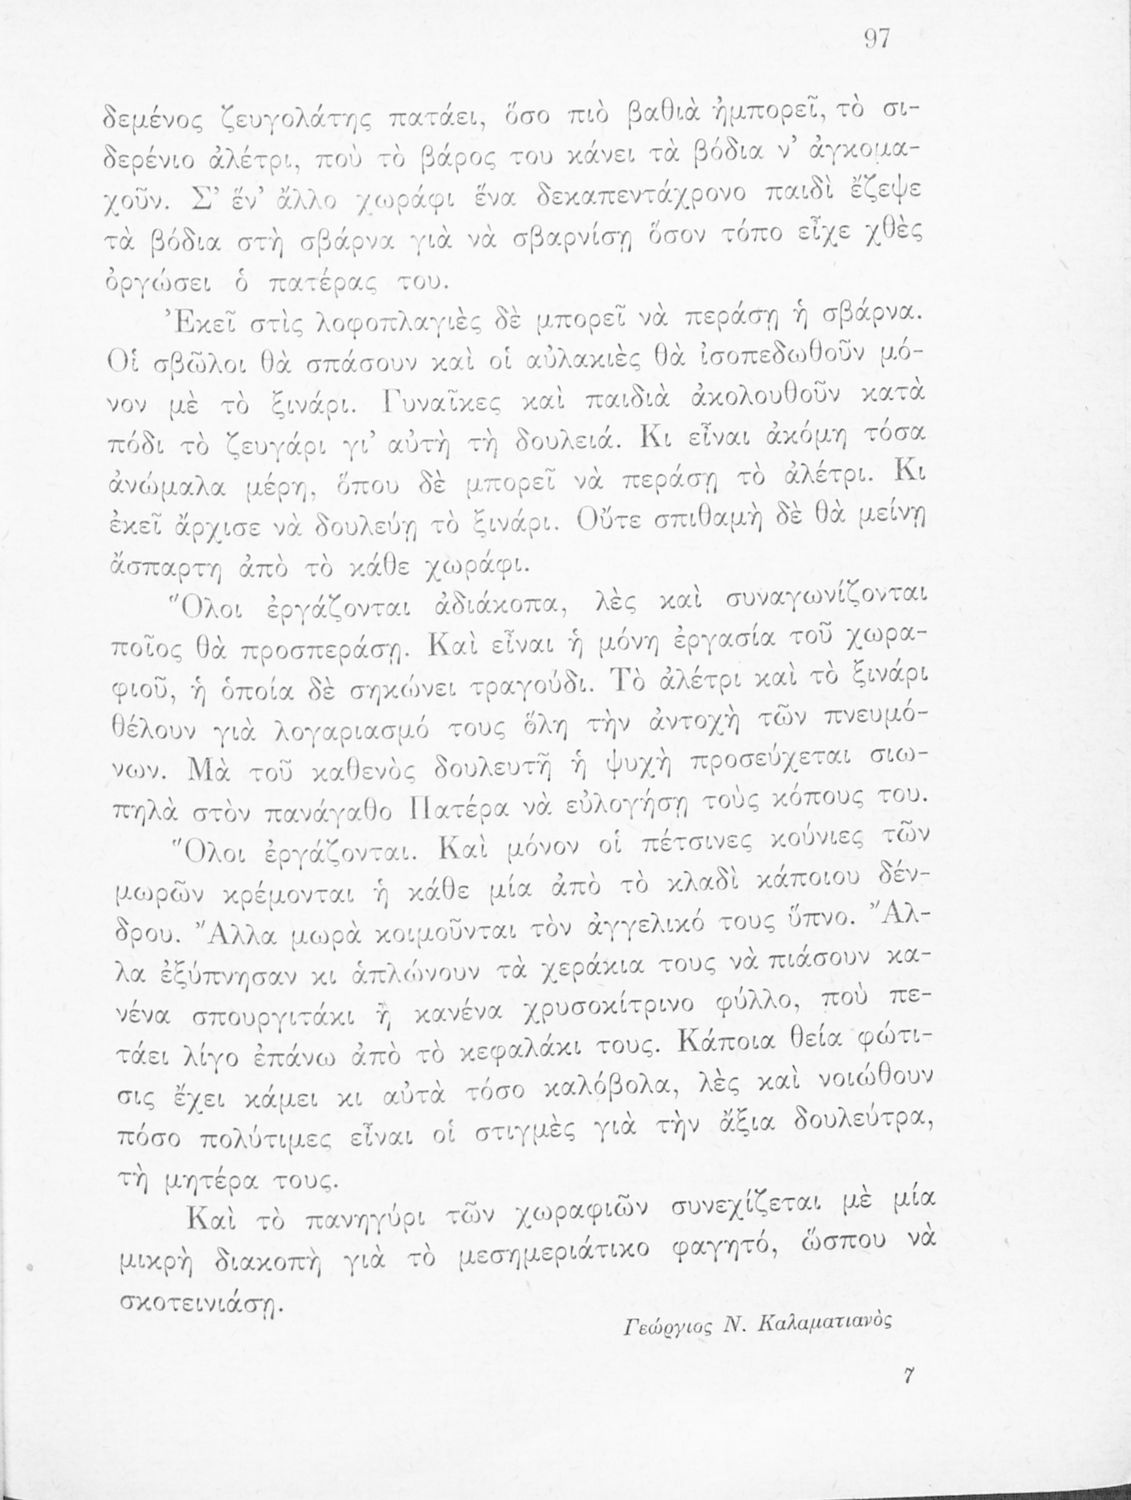 97
δεμένος ζευγολάτης πατάει, ὅσο πιὸ βαθιὰ ἠμπορεῖ, τὸ σι-
δερένιο ἀλέτρι, ποὺ τὸ βάρος του κάνει τὰ βόδια ν’ ἀγκομα-
χοῦν. Σ’ ἕν’ ἄλλο χωράφι ἕνα δεκαπεντάχρονο παιδὶ ἔζεψε
τὰ βόδια στὴ σβάρνα γιὰ νὰ σβαρνίσῃ ὅσον τόπο εἶχε χθὲς
ὀργώσει ὁ πατέρας του.
Ἐκεῖ στὶς λοφοπλαγιὲς δὲ μπορεῖ νὰ περάσῃ ἡ σβάρνα.
Οἱ σβῶλοι θὰ σπάσουν καὶ οἱ αὐλακιὲς θὰ ἰσοπεδωθοῦν μό-
νον μὲ τὸ ξινάρι. Γυναῖκες καὶ παιδιὰ ἀκολουθοῦν κατὰ
πόδι τὸ ζευγάρι γι’ αὐτὴ τὴ δουλειά. Κι εἶναι ἀκόμη τόσα
ἀνώμαλα μέρη, ὅπου δὲ μπορεῖ νὰ περάσῃ τὸ ἀλέτρι. Κι
ἐκεῖ ἄρχισε νὰ δουλεύῃ τὸ ξινάρι. Οὔτε σπιθαμὴ δὲ θὰ μείνῃ
ἄσπαρτη ἀπὸ τὸ κάθε χωράφι.
Ὅλοι ἐργάζονται ἀδιάκοπα, λὲς καὶ συναγωνίζονται
ποῖος θὰ προσπεράσῃ. Καὶ εἶναι ἡ μόνη ἐργασία τοῦ χωρα-
φιοῦ, ἡ ὁποία δὲ σηκώνει τραγούδι. Τὸ ἀλέτρι καὶ τὸ ξινάρι
θέλουν γιὰ λογαριασμό τους ὅλη τὴν ἀντοχὴ τῶν πνευμό-
νων. Μὰ τοῦ καθενὸς δουλευτῆ ἡ ψυχὴ προσεύχεται σιω-
πηλὰ στὸν πανάγαθο Πατέρα νὰ εὐλογήσῃ τοὺς κόπους του.
Ὅλοι ἐργάζονται. Καὶ μόνον οἱ πέτσινες κούνιες τῶν
μωρῶν κρέμονται ἡ κάθε μία ἀπὸ τὸ κλαδὶ κάποιου δέν-
δρου. Ἄλλα μωρὰ κοιμοῦνται τὸν ἀγγελικό τους ὕπνο. Ἄλ-
λα ἐξύπνησαν κι ἁπλώνουν τὰ χεράκια τους νὰ πιάσουν κα-
νένα σπουργιτάκι ἢ κανένα χρυσοκίτρινο φύλλο, ποὺ πε-
τάει λίγο ἐπάνω ἀπὸ τὸ κεφαλάκι τους. Κάποια θεία φώτι-
σις ἔχει κάμει κι αὐτὰ τόσο καλόβολα, λὲς καὶ νοιώθουν
πόσο πολύτιμες εἶναι οἱ στιγμὲς γιὰ τὴν ἄξια δουλεύτρα,
τὴ μητέρα τους.
Καὶ τὸ πανηγύρι τῶν χωραφιῶν συνεχίζεται μὲ μία
μικρὴ διακοπὴ γιὰ τὸ μεσημεριάτικο φαγητό, ὥσπου νὰ
σκοτεινιάσῃ.
Γεώργιος Ν. Καλαματιανὸς
7